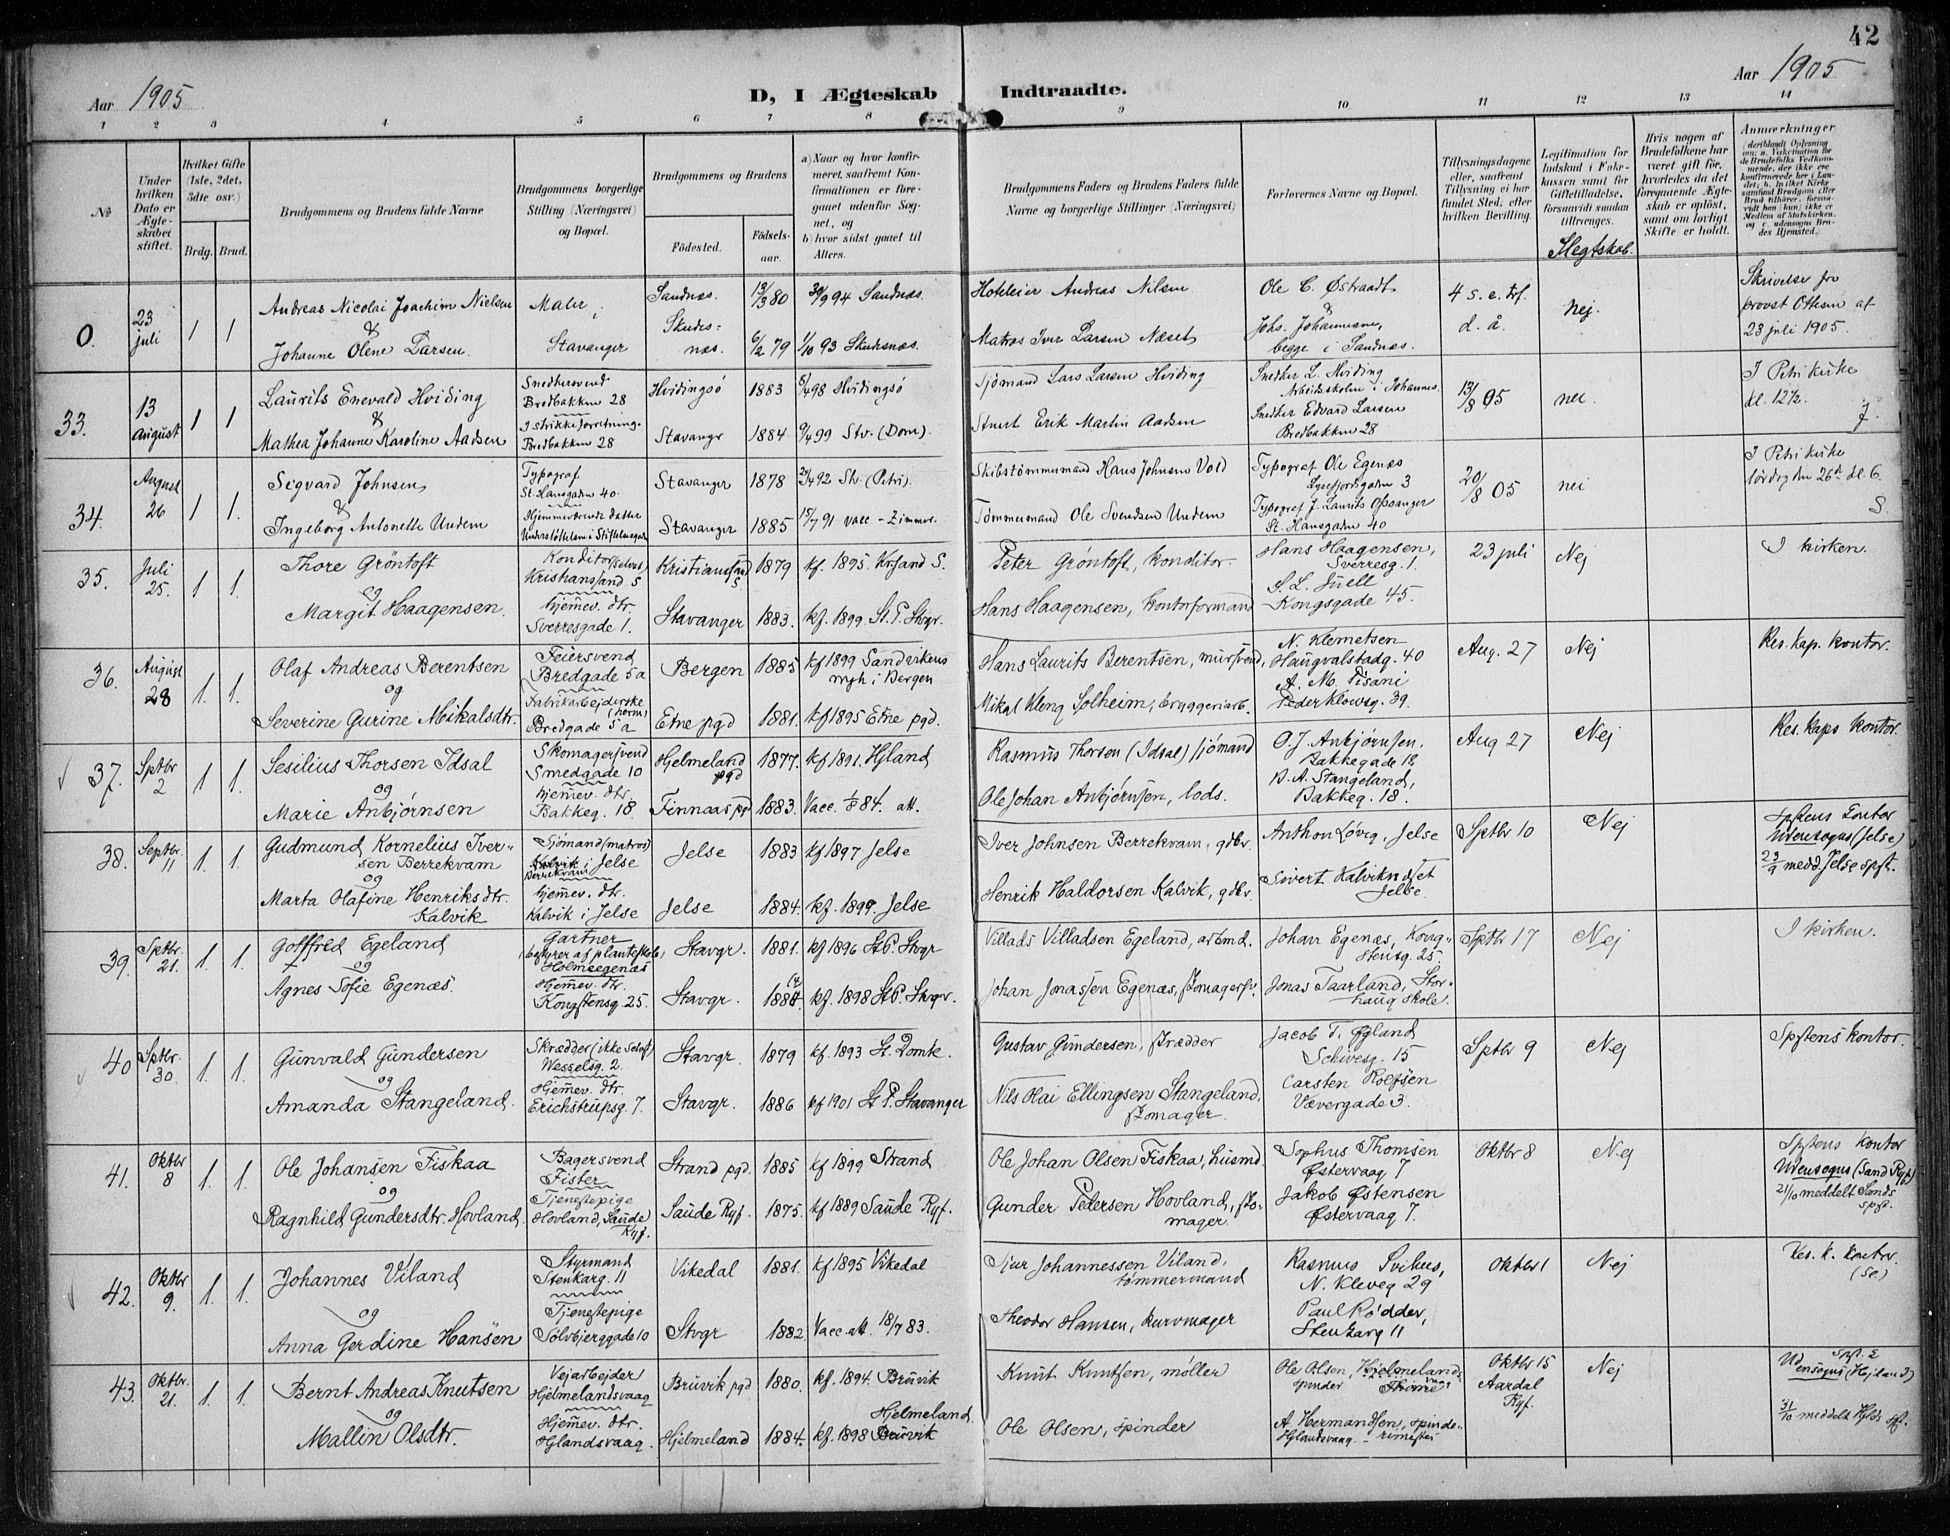 42
Aar 1905
D, I Ægteskab Indtraadte.
Aar 1905
1 2 3 4 5 6 7 8 9 10 11 12 13 14
No
Under hvilken Dato er Ægteskabet stiftet.
Hvilket Gifte (1ste, 2det, 3dte osv.)
Brdg. Brud.
Brudgommens og Brudens fulde Navne
Brudgommens borgerlige Stilling (Næringsvei) og Bopæl.
Brudgommens og Brudens
Födested.
Födselsaar.
a) Naar og hvor konfirmeret, saafremt Konfirmationen er foregaaet udenfor Sognet, og
b) hvor sidst gaaet til Alters.
Brudgommens Faders og Brudens Faders fulde Navne og borgerlige Stillinger (Næringsvei)
Forlovernes Navne og Bopæl.
Tillysningsdagene eller, saafremt Tillysning ei har fundet Sted, efter hvilken Bevilling.
Legitimation for Indskud i Enkekassen samt for Giftetilladelse, forsaavidt saadan tiltrænges.
Slegtskab.
Hvis nogen af Brudefolkene har været gift för, hvorledes da det foregaaende Ægteskab er oplöst, samt om lovligt Skifte er holdt.
Anmærkninger
0. 23 juli 1 1
Andreas Nicolai Joachim Nielsen
&
Johanne Olene Larsen
Maler,
Stavanger
Sandnæs. 13/3 80 30/9 94 Sandnæs.
Skudesnæs. 6/2 79 1/10 93 Skudesnæs.
Hoteleier Andreas Nilsen
Matros Iver Larsen Næset
Ole C. Østraadt
&
Johs. Johannesen,
begge i Sandnæs.
4 s. e. tref.
d. å.
nej.
Skrivelse fra
provst Ottesen af
23 juli 1905.
33. 13 August 1 1
Laurits Enevald Hviding
&
Mathea Johanne Karoline Aadsen
Snedkersvend
Bredbakken 28
I strikkeforretning
Bredbakken 28
Hvidingsö 1883 98 Hvidingsö
Stavangr 1884 99 Stv. (Dom).
Sjömand Lars Larsen Hviding
Stuert Erik Martin Aadsen
Snedker L. Hviding
Snedker Edvard Larsen
Bredbakken 28
13/8 05
nei.
I Petri kirke
kl. 12½.
J.
34. August 26 1 1.
Sigvard Johnsen
&
Ingeborg Antonette Undem
Typograf
St. Hansgaden 40.
Hjemmeværende datter
Stavanger 1878 92 Stv. (Petri).
Stavanger 1885 15/7 91 vacc - Zimmer.
Skibstömmermand Hans Johnsen Vold
Tömmermand Ole Svendsen Undem
Typograf Ole Egenæs
Lysefjordsgaden 3
Typograf J. Laurits Opsanger
St. Hansgaden 40
20/8 05
nei
I Petri kirke
lördag den 26de kl. 6.
S.
35. Juli 25. 1 1.
Thore Gröntoft
og
Margit Haagensen.
Konditor
Kristiansand S
hjemmev. dtr.
Sverresgade 1.
Kristiansand S 1879 kf. 1895. Krsand S.
Stavanger 1883. kf. 1899. St. P. Stvgr.
Peter Gröntoft, konditor
Hans Haagensen, kontorformand
Hans Haagensen,
Sverresg. 1.
S. L. Juell
Kongsgade 45.
23 juli
Nej
I kirken.
36. August 28 1. 1.
Olaf Andreas Berentsen
og
Severine Gurine Mikalsdtr.
Feiersvend
Bredgade 5a
Fabrikarbejderske
(herm)
Bredgade 5a
Bergen 1885 kf 1899 Sandvikens mgh. i Bergen
Etne pgd 1881. kf 1895 Etne pgd.
Hans Laurits Berentsen, mursvend,
Mikal Kleng Solheim, bryggeriarb.
N. Klemetsen
Haugvalstadg. 40
A. M. Tisani
Peder Klowsg. 39.
Aug. 27
Nej
Res. kap. kontor.
37. Septbr 2 1 1
Sesilius Thorsen Idsal
og
Marie Anbjørnsen
Skomagersvend
Smedgade 10
hjemmev. dtr.
Bakkeg. 18.
Hjelmeland pgd 1877. kf 1891. Hjland
Finnaas pgd 1883. Vacc. 1/8 84. att.
Rasmus Thorsen (Idsal) sjömand
Ole Johan Anbjørnsen, lods.
O. J. Anbjørnsen.
Bakkegade 18
B. A. Stangeland,
Bakkeg. 18.
Aug 27
Nej
Res. kaps kontor.
38. Septbr 11 1. 1.
Gudmund Kornelius Iversen Berrekvam
og
Marta Olafine Henriksdtr. Kalvik
Sjömand (matros)
Berrekvam i Jelse
hjemmev. dtr.
Kalvik i Jelse
Jelse 1883 kf 1897 Jelse
Jelse 1884. kf. 1899. Jelse
Iver Johnsen Berrekvam, gdbr.
Henrik Haldorsen Kalvik, gdbr.
Anthon Lövig, Jelse
Sivert Kalviknæset
Jelse.
Septbr 10
Nej
Spstens kontor
Udensogns (Jelse)
23/9 medd. Jelse spst.
39. Septbr. 21. 1. 1.
Gottfred Egeland
og
Agnes Sofie Egenæs.
Gartner
(bestyrer af planteskole)
Holmeegenæs
Hjemmev. dtr.
Kongstensg. 25.
Stavgr. 1881. kf 1896 St. P. Stvgr
Stavgr. 1884. kf. 1898 St. P. Stvgr.
Villads Villadsen Egeland, arbmd.
Johan Jonassen Egenæs, skomagersv.
Johan Egenæs, Kongstensg. 25.
Jonas Taarland, Storhaug skole.
Septbr 17
Nej
I kirken.
40 Septbr. 30. 1. 1.
Gunvald Gundersen
og
Amanda Stangeland.
Skrædder (ikke selvst)
Wesselsg. 2.
Hjemmev. dtr.
Erichstrupsg. 7.
Stavgr. 1879 kf. 1893 St. Domk.
Stavgr. 1886 kf 1901 St P. Stavanger
Gustav Gundersen, skrædder
Nils Olai Ellingsen Stangeland,
skomager.
Jacob T. Øgland
Schivesg. 15
Carsten Rolfsen
Vævergade 3.
Septbr 9
Nej
Spstens kontor.
41. Oktbr 8 1. 1.
Ole Johansen Fiskaa
og
Ragnhild Gundersdtr. Hovland
Bagersvend
Fister
Tjenestepige
Hovland, Saude Ryf.
Strand pgd. 1885 kf 1899 Strand
Saude Ryf. 1875. kf 1889 Saude Ryf.
Ole Johan Olsen Fiskaa, husmd
Gunder Pedersen Hovland, skomager.
Sophus Thomsen
Østervaag 7
Jakob Østensen
Østervaag 7.
Oktbr 8
Nej
Spstens kontor
Udensogns (Sand Ryf)
21/10 meddelt Sands spst.
42. Oktbr 9. 1. 1.
Johannes Viland
og
Anna Gerdine Hansen
Styrmand
Stenkarg. 11
Tjenestepige
Sölvbjerggade 10
Vikedal 1881. kf 1895 Vikedal
Stvgr 1882 Vacc. att. 18/7 83.
Sjur Johannessen Viland,
tömmermand
Theodor Hansen, kurvmager
Rasmus Svihus,
N. Kleveg 29
Paul Rödder,
Stenkarg 11
Oktbr 1
Nej
Res. k. kontor
43. Oktbr. 21. 1. 1.
Bernt Andreas Knutsen
og
Mallin Olsdtr.
Vejarbejder
Hjelmelandsvaag
Hjemmev. dtr.
Hjlandsvaag.
Bruvik pgd 1880. kf. 1894. Bruvik
Hjelmeland 1884. kf. 1898 Hjelmeland
Knut Knutsen, møller
Ole Olsen, spinder
Ole Olsen, Hjelmelandsvaag
spinder
A. Hermandsen, spinderimester
Hjlandsvaag
Oktbr 15
Aardal Ryf.
Nej
Udensogns (Hjland)
31/10 meddelt Hjlds spst.